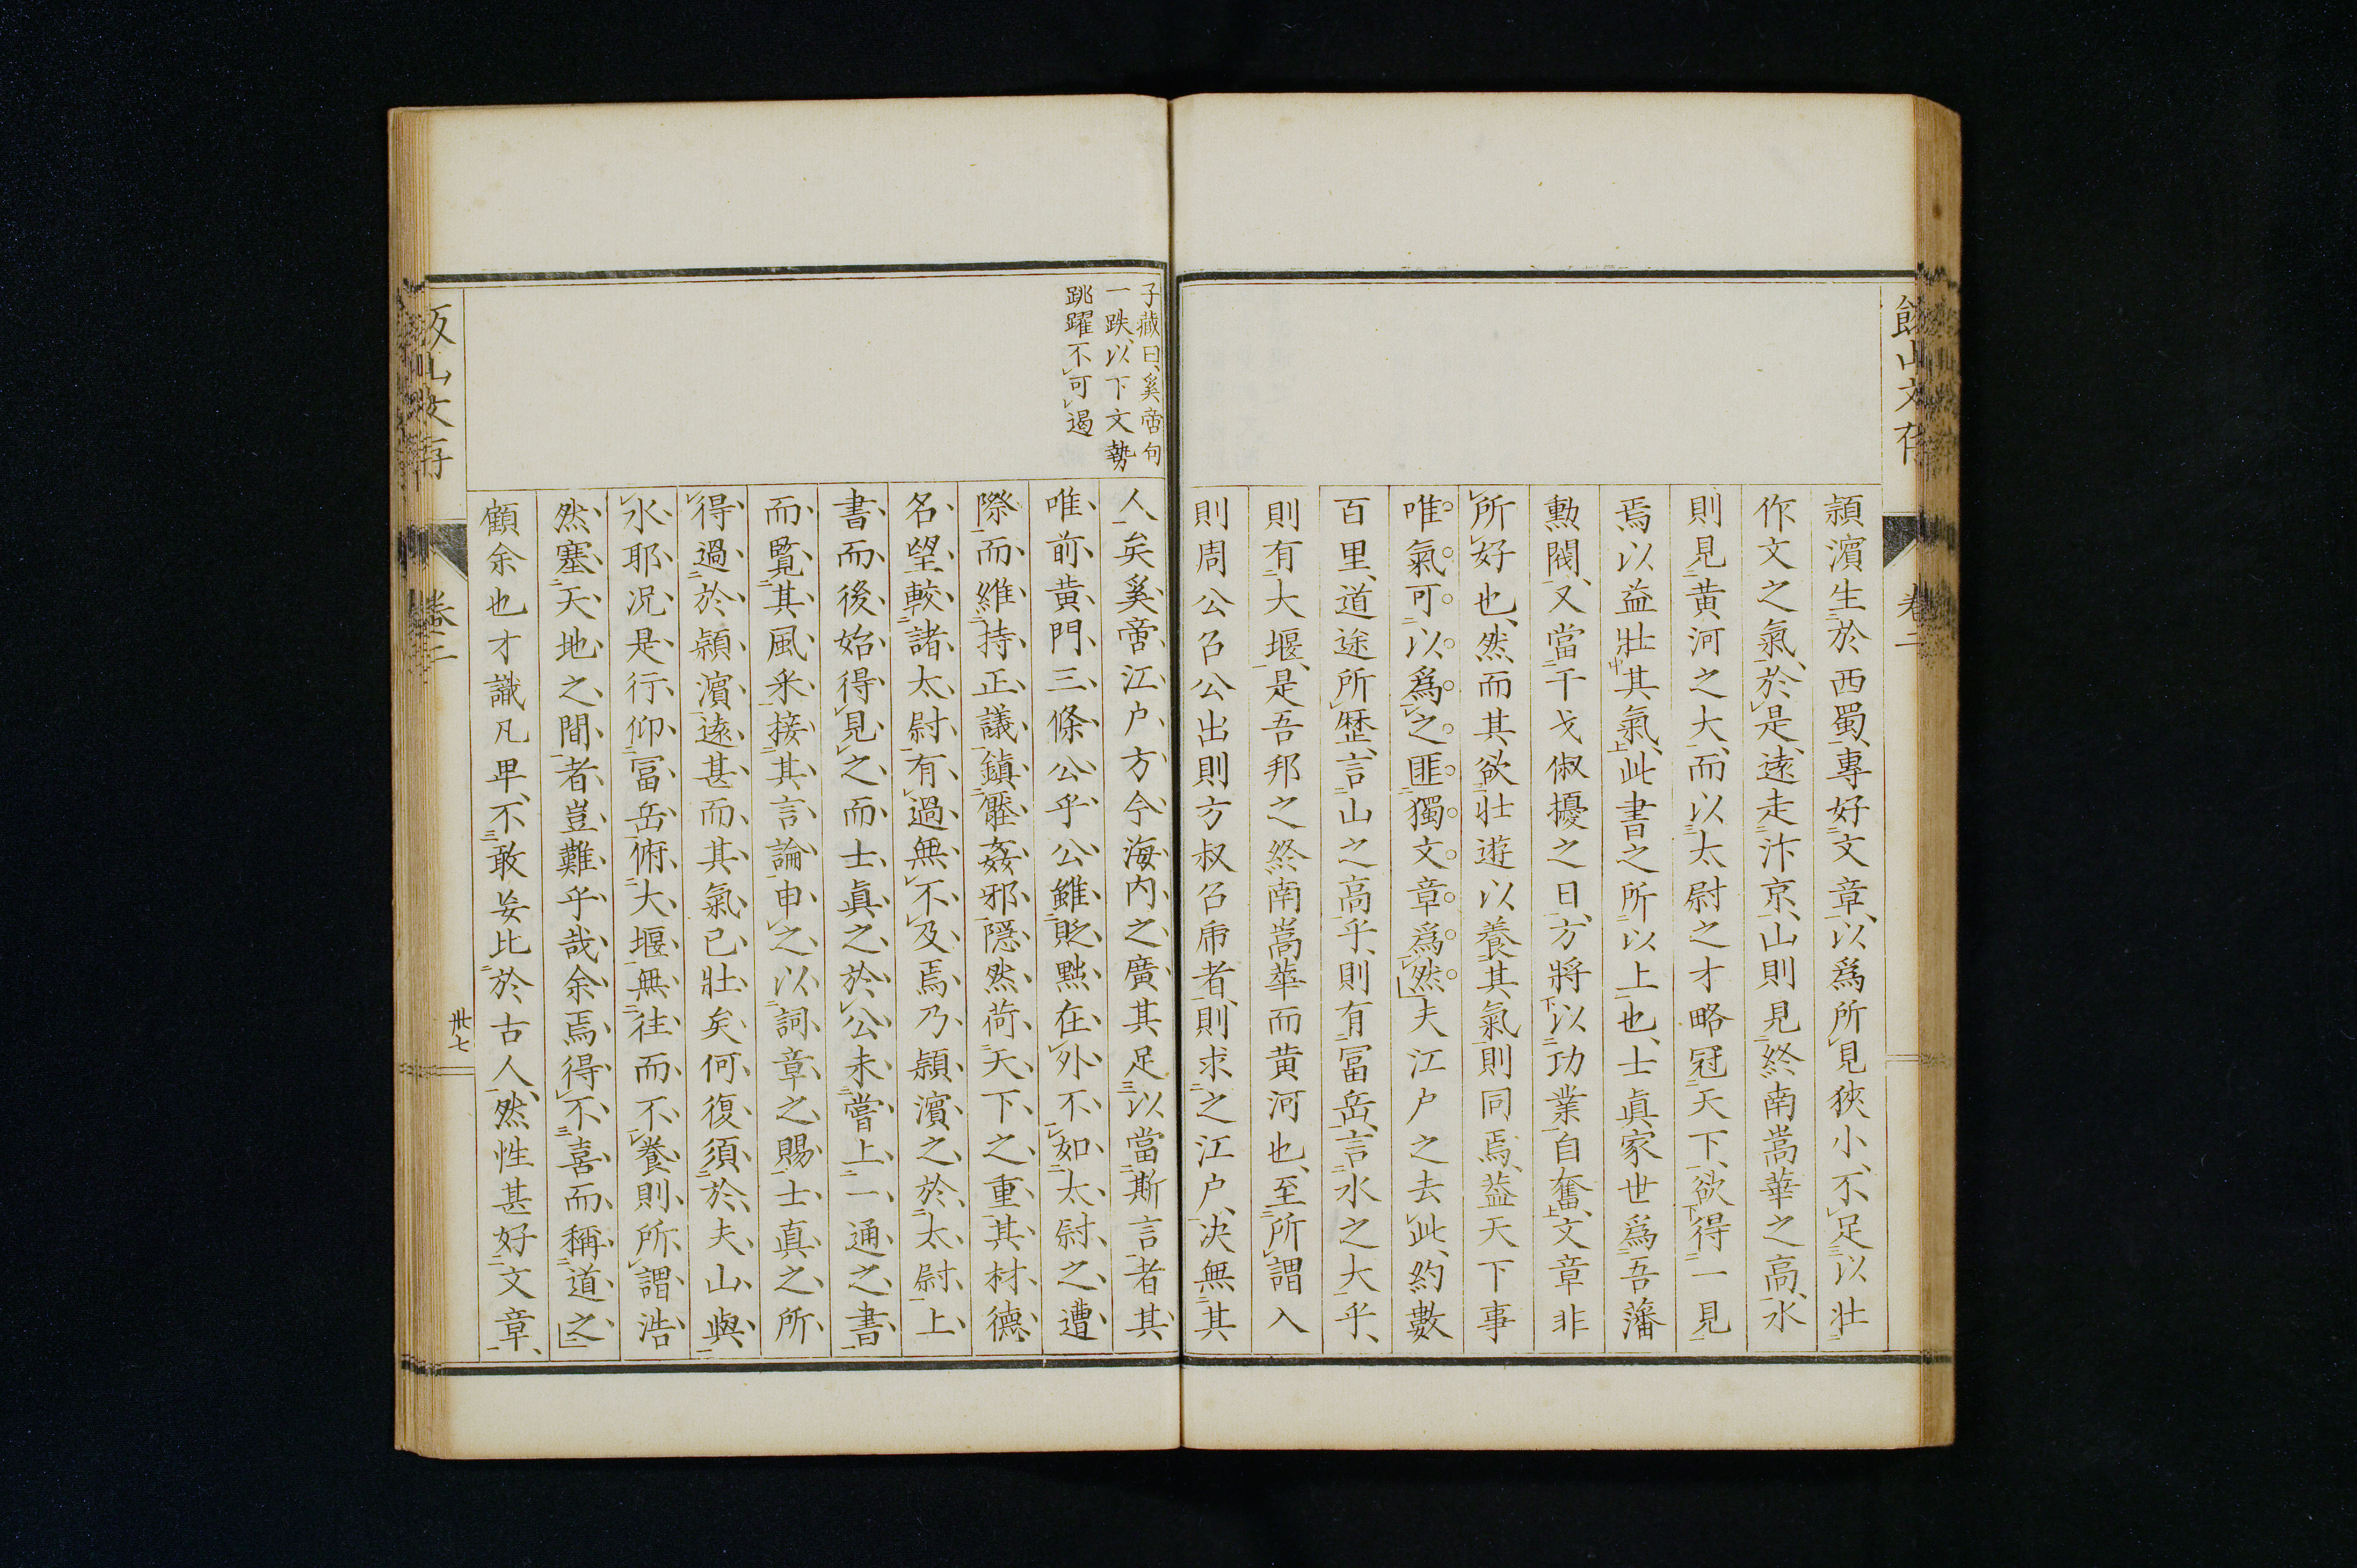 頴濵生於西蜀、專好文章、以爲所見狹小、不足以壮
作文之氣、於是、遠走汴京、山則見終南嵩華之高、水
則見黄河之大、而以太尉之才略冠天下、欲得一見
焉以益壯其氣、此書之所以上也、士眞家世爲吾藩
勲閥、又當干戈俶擾之日、方將以功業自奮、文章非
所好也、然而其欲壮遊以養其氣則同焉、葢天下事
唯氣可以爲之匪獨文章爲然」夫江户之去此、約數
百里、道途所歴、言山之高乎、則有冨岳、言水之大乎、
則有大堰、是吾邦之終南嵩華而黄河也、至所謂入
則周公召公出則方叔召乕者、則求之江户、决無其
子藏曰、奚啻句
一跌、以下文勢
跳躍不可遏
人矣奚啻江户方今海内之廣其足以當斯言者其
唯前黄門三條公乎公雖貶黜在外不如太尉之遭
際而維持正議鎮壓姦邪隱然荷天下之重其材德
名望較諸太尉有過無不及焉乃頴濵之於太尉上
書而後始得見之而士眞之於公未嘗上一通之書
而覧其風采接其言論申之以詞章之賜士真之所
得過於頴濵遠甚而其氣已壯矣何復須於夫山與
水耶况是行仰冨岳俯大堰無往而不養則所謂浩
然塞天地之間者豈難乎哉余焉得不喜而稱道之」
顧余也才識凡卑、不敢妄比於古人、然性甚好文章、
卷二
卅七